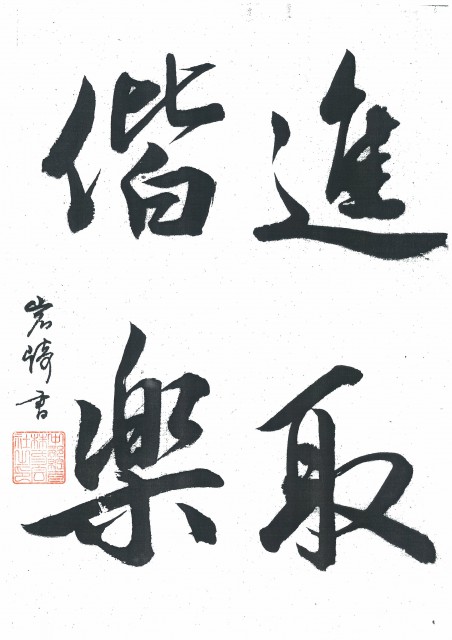 進取
偕樂
岩崎書